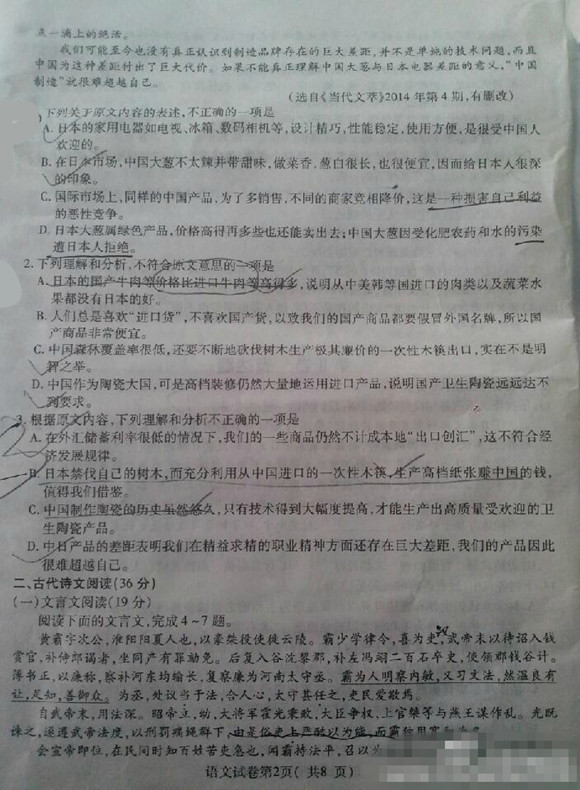 点一滴上的绝活。
我们可能至今也没有真正认识到制造品牌存在的巨大差距,并不是单纯的技术问题,而且
中国为这种差距付出了巨大代价。如果不能真正理解中国大葱与日本电器差距的意义,“中国
制造”就很难超越自己。
(选自《当代文萃》2014年第4期,有删改)
下列关于原文内容的表述,不正确的一项是
A. 日本的家用电器如电视、冰箱、数码相机等,设计精巧,性能稳定,使用方便,是很受中国人
欢迎的。
B. 在日本市场,中国大葱不太辣并带甜味,做菜香,葱白很长,也很便宜,因而给日本人很深
的印象。
C. 国际市场上,同样的中国产品,为了多销售,不同的商家竞相降价,这是一种损害自己利益
的恶性竞争。
D. 日本大葱属绿色产品,价格高得再多些也还能卖出去;中国大葱因受化肥农药和水的污染
遭日本人拒绝。
2. 下列理解和分析,不符合原文意思的一项是
A. 日本的国产牛肉等价格比进口牛肉等高得多,说明从中美韩等国进口的肉类以及蔬菜水
果都没有日本的好。
B. 人们总是喜欢“进口货”,不喜欢国产货,以致我们的国产商品都要假冒外国名牌,所以国
产商品非常便宜。
C. 中国森林覆盖率很低,还要不断地砍伐树木生产极其廉价的一次性木筷出口,实在不是明
智之举。
D. 中国作为陶瓷大国,可是高档装修仍然大量地运用进口产品,说明国产卫生陶瓷远远达不
到要求。
3. 根据原文内容,下列理解和分析不正确的一项是
A. 在外汇储蓄利率很低的情况下,我们的一些商品仍然不计成本地“出口创汇”,这不符合经
济发展规律。
B. 日本禁伐自己的树木,而充分利用从中国进口的一次性木筷,生产高档纸张赚中国的钱,
值得我们借鉴。
C. 中国制作陶瓷的历史虽然悠久,只有技术得到大幅度提高,才能生产出高质量受欢迎的卫
生陶瓷产品。
D. 中日产品的差距表明我们在精益求精的职业精神方面还存在巨大差距,我们的产品因此
很难超越自己。
二、古代诗文阅读(36分)
(一)文言文阅读(19分)
阅读下面的文言文,完成4~7题。
黄霸字次公,淮阳阳夏人也,以豪桀役使徙云陵。霸少学律令,喜为吏,武帝末以待诏入钱
赏官,补侍郎谒者,坐同产有罪劾免。后复入谷沈黎郡,补左冯翊二百石卒史,使领郡钱谷计。
簿书正,以廉称,察补河东均输长,复察廉为河南太守丞。霸为人明察内敏,又习文法,然温良有
让,足知,善御众。为丞,处议当于法,合人心,太守甚任之,吏民爱敬焉。
自武帝末,用法深。昭帝立,幼,大将军霍光秉政,大臣争权,上官桀等与燕王谋作乱。光既
诛之,遂遵武帝法度,以刑罚痛绳群下,由是俗吏上严酷以为能,而霸
会宣帝即位,在民间时知百姓苦吏急也,闻霸持法平,召以为
语文试卷第2页(共8页)